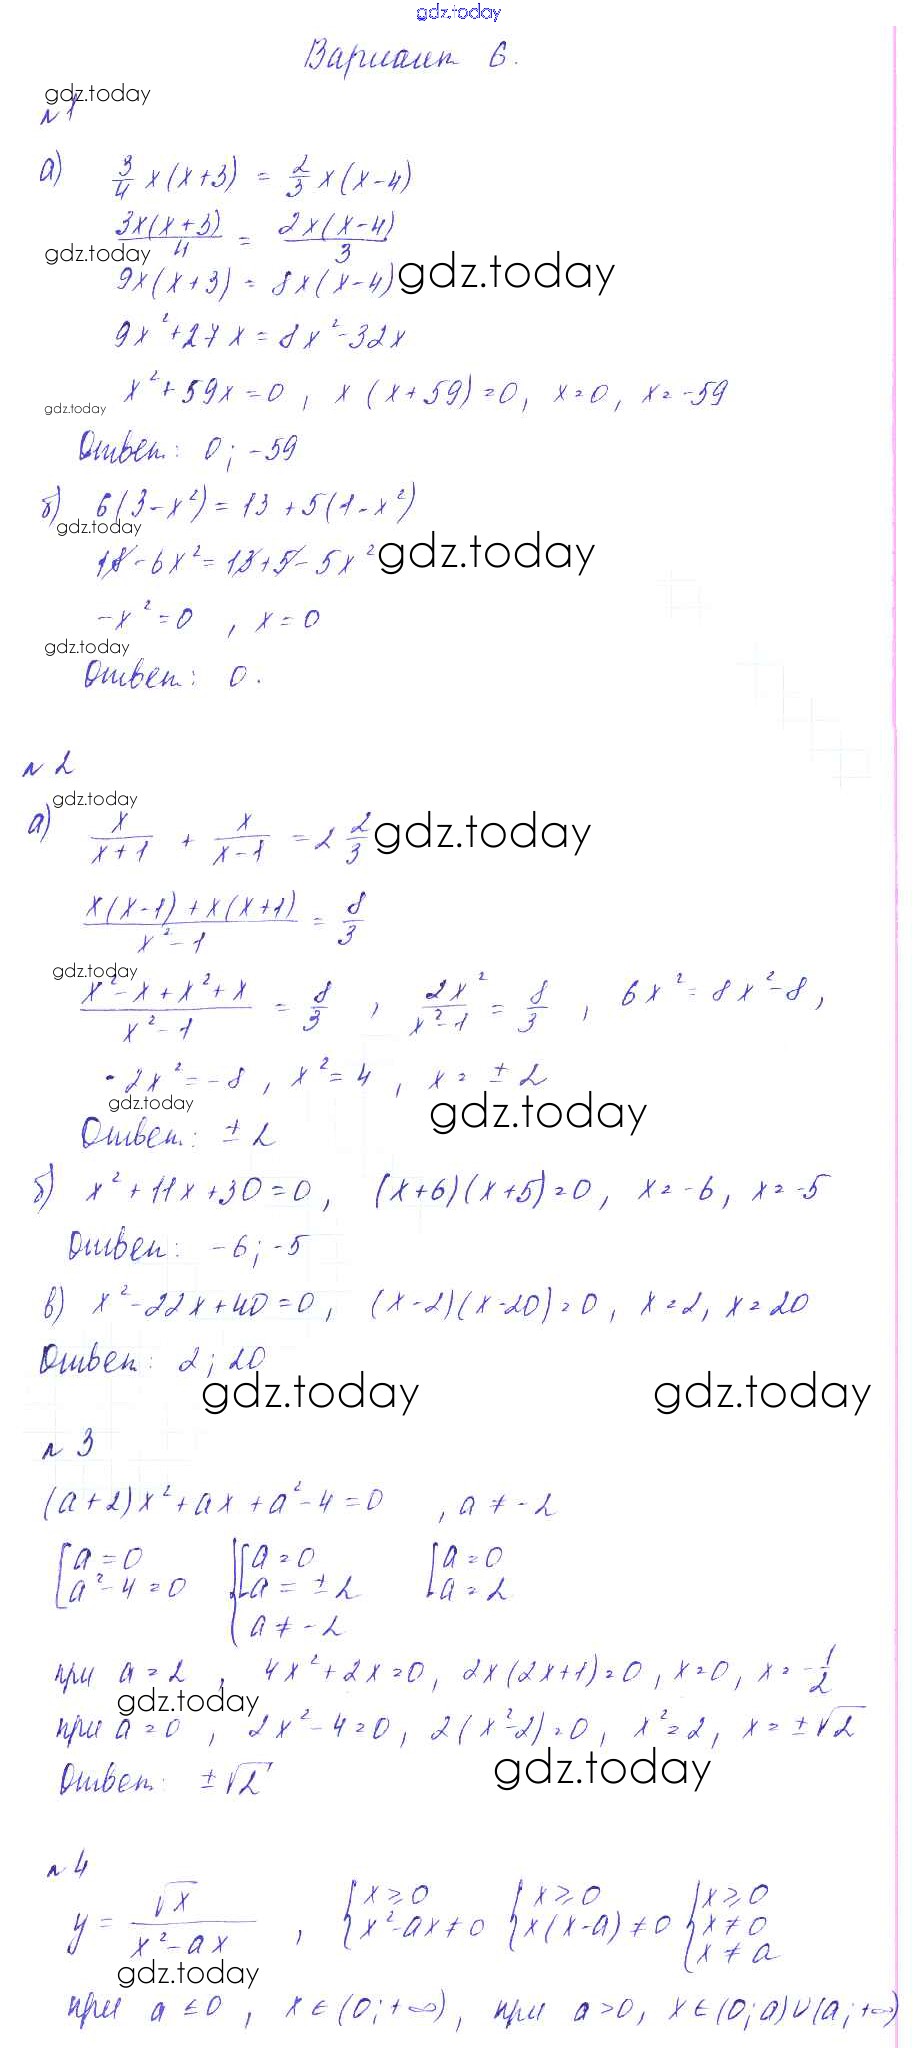 gdz.today
Вариант 6.
gdz.today
№1
а) 3/4 x(x+3) = 2/3 x(x-4)
3x(x+3)/4 = 2x(x-4)/3
gdz.today
9x(x+3) = 8x(x-4) gdz.today
9x²+27x=8x²-32x
x²+59x=0, x(x+59)=0, x=0, x=-59
gdz.today
Ответ: 0; -59
б) 6(3-x²)=13+5(1-x²)
gdz.today
18-6x²=13+5-5x² gdz.today
-x²=0, x=0
gdz.today
Ответ: 0.
№2
gdz.today
а) x/(x+1) + x/(x-1) = 2 2/3 gdz.today
(x(x-1)+x(x+1))/(x²-1) = 8/3
gdz.today
(x²-x+x²+x)/(x²-1) = 8/3, 2x²/(x²-1) = 8/3, 6x²=8x²-8,
-2x²=-8, x²=4, x=±2
gdz.today gdz.today
Ответ: ±2
б) x²+11x+30=0, (x+6)(x+5)=0, x=-6, x=-5
Ответ: -6; -5
в) x²-22x+40=0, (x-2)(x-20)=0, x=2, x=20
Ответ: 2; 20
gdz.today gdz.today
№3
(a+2)x²+ax+a²-4=0, a≠-2
[a=0 {[a=0 [a=0
a²-4=0 a=±2 a=2
a≠-2
при a=2, 4x²+2x=0, 2x(2x+1)=0, x=0, x=-1/2
gdz.today
при a=0, 2x²-4=0, 2(x²-2)=0, x²=2, x=±√2
gdz.today
Ответ: ±√2
№4
y = √x/(x²-ax), {x≥0 {x≥0 {x≥0
x²-ax≠0 x(x-a)≠0 x≠0
x≠a
gdz.today
при a≤0, x∈(0;+∞), при a>0, x∈(0;a)∪(a;+∞)